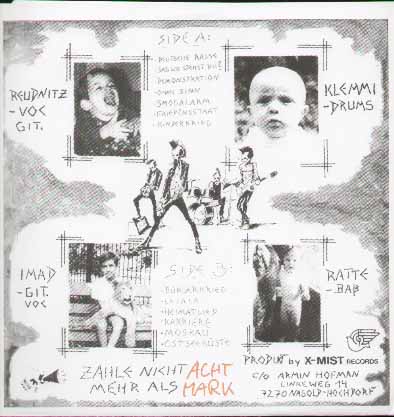 SIDE A:
DEUTSCHE RASSE
SAG WO STEHST DU?
DEMONSTRATION
OHNE SINN
SMOGALARM
FRIEDENSSTAAT
KINDERKRIEG
REUDNITZ
-VOC
GIT.
KLEMMI
-DRUMS
IMAD
-GIT.
VOC
SIDE B:
BÜRGERKRIEG
HEIMATLIED
KARRIERE
MOSKAU
OSTSEEKÜSTE
RATTE
-BAß
ZAHLE NICHT ACHT
MEHR ALS MARK
PRODUKT by X-MIST RECORDS
C/O ARMIN HOFMAN
LINKEWEG 14
7270 NAGOLD-HOCHDORF